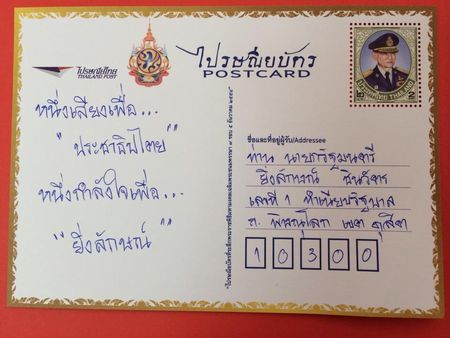 ไปรษณีย์ไทย
THAILAND POST
ไปรษณียบัตร
POSTCARD
หนึ่งเสียงเพื่อ...
"ประชาธิปไตย"
หนึ่งกำลังใจเพื่อ...
"ยิ่งลักษณ์"
ชื่อและที่อยู่ผู้รับ/Addressee
ท่าน นายกรัฐมนตรี
ยิ่งลักษณ์ ชินวัตร
เลขที่ 1 ทำเนียบรัฐบาล
ถ. พิษณุโลก เขต ดุสิต
10300